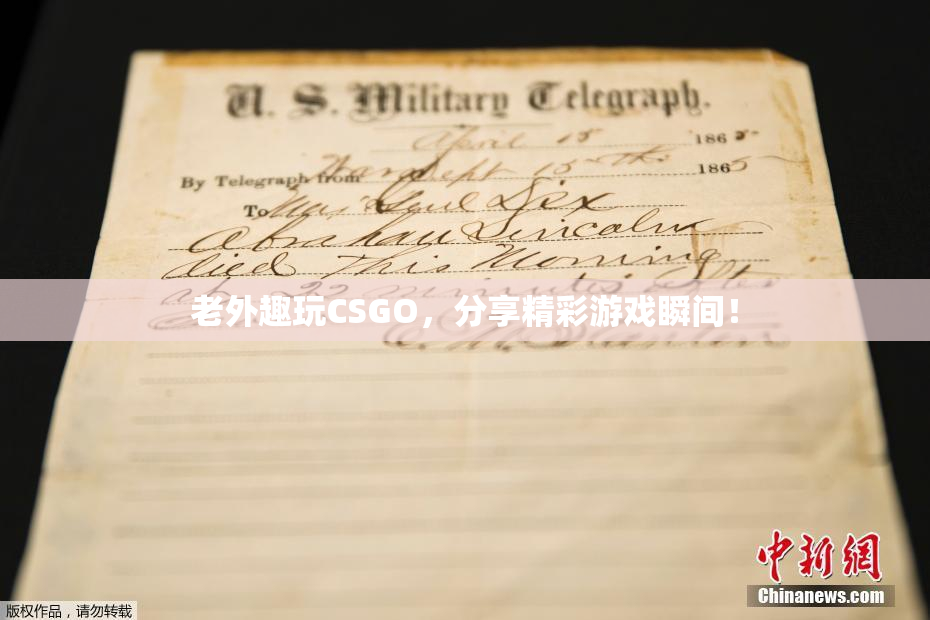 U. S. Military Telegraph.
April 15 1865
By Telegraph from War Dept 15th 1865
To Maj Genl Dix
Abraham Lincoln
died This Morning
at 22 minutes after
老外趣玩CSGO，分享精彩游戏瞬间！
E. M. Stanton
中新网
Chinanews.com
版权作品，请勿转载